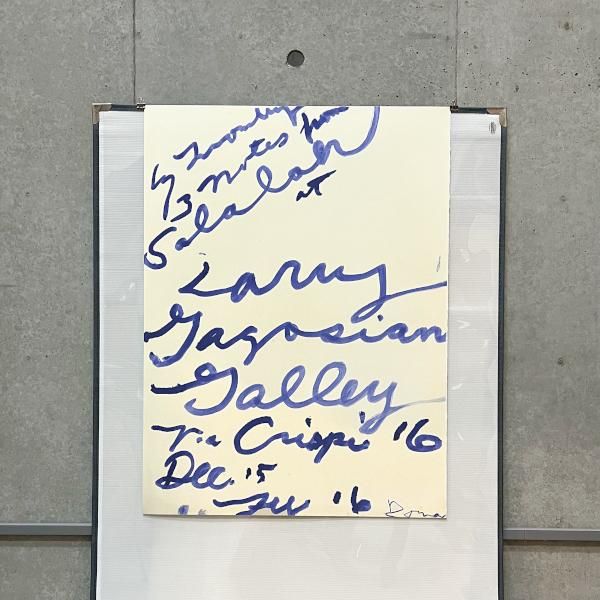 Cy Twombly
3 Notes from
Salalah
at
Larry
Gagosian
Galley
Via Crispi '16
Dec. '15
Feb '16
Roma